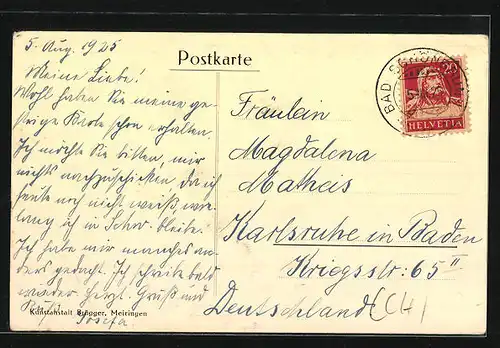 5. Aug. 1925
Meine Liebe!
Wohl haben Sie meine ge-
strige Karte schon erhalten.
Ich möchte Sie bitten, mir
nichts nachzuschicken, da ich
heute noch nicht weiß, wie
lang ich in Schw. bleibe.
Ich habe mir manches an-
ders gedacht. Ich schreibe bald
wieder. Herzl. Gruß und
Kuß Josefa
Kunstanstalt Brügger, Meiringen
Postkarte
BAD
20
HELVETIA
Fräulein
Magdalena
Matheis
Karlsruhe in Baden
Kriegsstr: 65 II
Deutschland